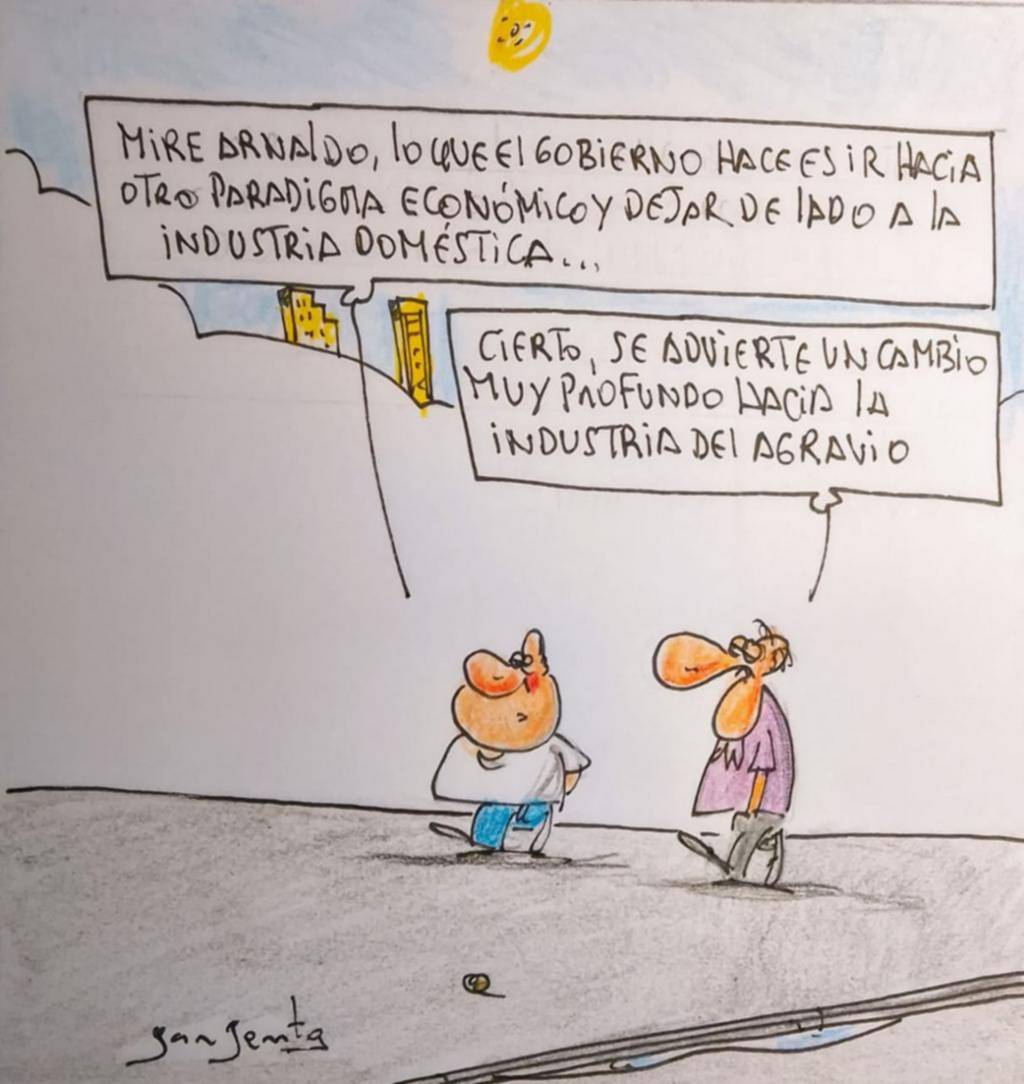 MIRE ARNALDO, LO QUE EL GOBIERNO HACE ES IR HACIA
OTRO PARADIGMA ECONÓMICO Y DEJAR DE LADO A LA
INDUSTRIA DOMÉSTICA...
CIERTO, SE ADVIERTE UN CAMBIO
MUY PROFUNDO HACIA LA
INDUSTRIA DEL AGRAVIO